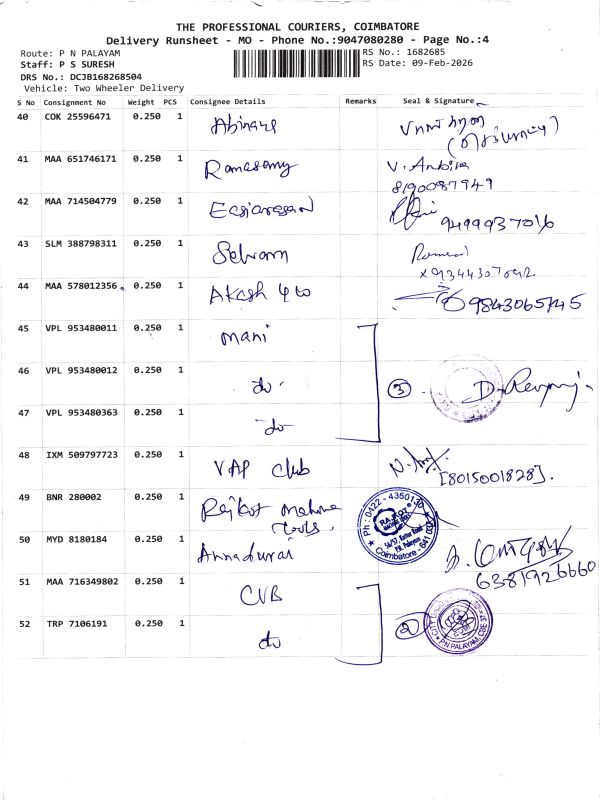 THE PROFESSIONAL COURIERS, COIMBATORE
Delivery Runsheet - MO - Phone No.:9047080280 - Page No.:4
Route: P N PALAYAM
RS No.: 1682685
Staff: P S SURESH
RS Date: 09-Feb-2026
DRS No.: DCJB168268504
Vehicle: Two Wheeler Delivery
S No Consignment No Weight PCS Consignee Details Remarks Seal & Signature
40 COK 25596471 0.250 1
41 MAA 651746171 0.250 1 Ramasamy V. Anbika
8190087949
42 MAA 714504779 0.250 1 9499937016
43 SLM 388798311 0.250 1 Selvam
44 MAA 578012356 0.250 1 Akash 9843065745
45 VPL 953480011 0.250 1 Mani
46 VPL 953480012 0.250 1 do 3
47 VPL 953480363 0.250 1 do
48 IXM 509797723 0.250 1 VAP club [8015001828].
49 BNR 280002 0.250 1 Rajkot tools. Ph : 0422 - 4350130
RAJKOT
Coimbatore - 641 037
50 MYD 8180184 0.250 1 Annadurai
6381926660
51 MAA 716349802 0.250 1 CUB
52 TRP 7106191 0.250 1 do 2 P.N PALAYAM, CBE